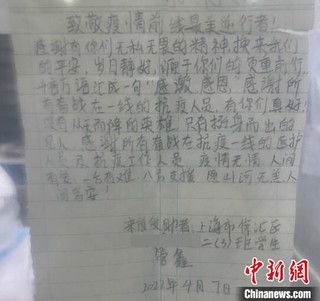 致敬疫情前线最美逆行者!
感谢有你们无私无畏的精神换来我们
的平安,岁月静好,源于你们的负重前行
千言万语汇成一句"感激,感恩"感谢所
有奋战在一线的抗疫人员,有你们真好!
没有从天而降的英雄,只有挺身而出的
凡人,感谢所有奋战在抗疫一线的医护
人员及抗疫工作人员,疫情无情人间
有爱,一方有难,八方支援,愿山河无恙人
间皆安!
来信受助者:上海市徐汇区
二(3)班学生
2022年4月7日
中新网
Chinanews.com